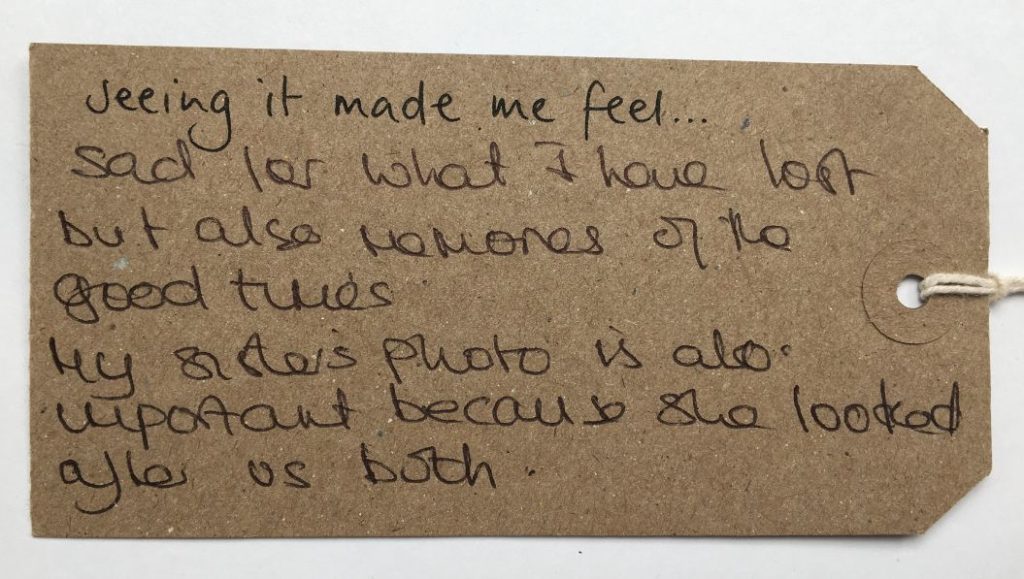 seeing it made me feel...
sad for what I have lost
but also memories of the
good times.
My sister's photo is also
important because she looked
after us both.